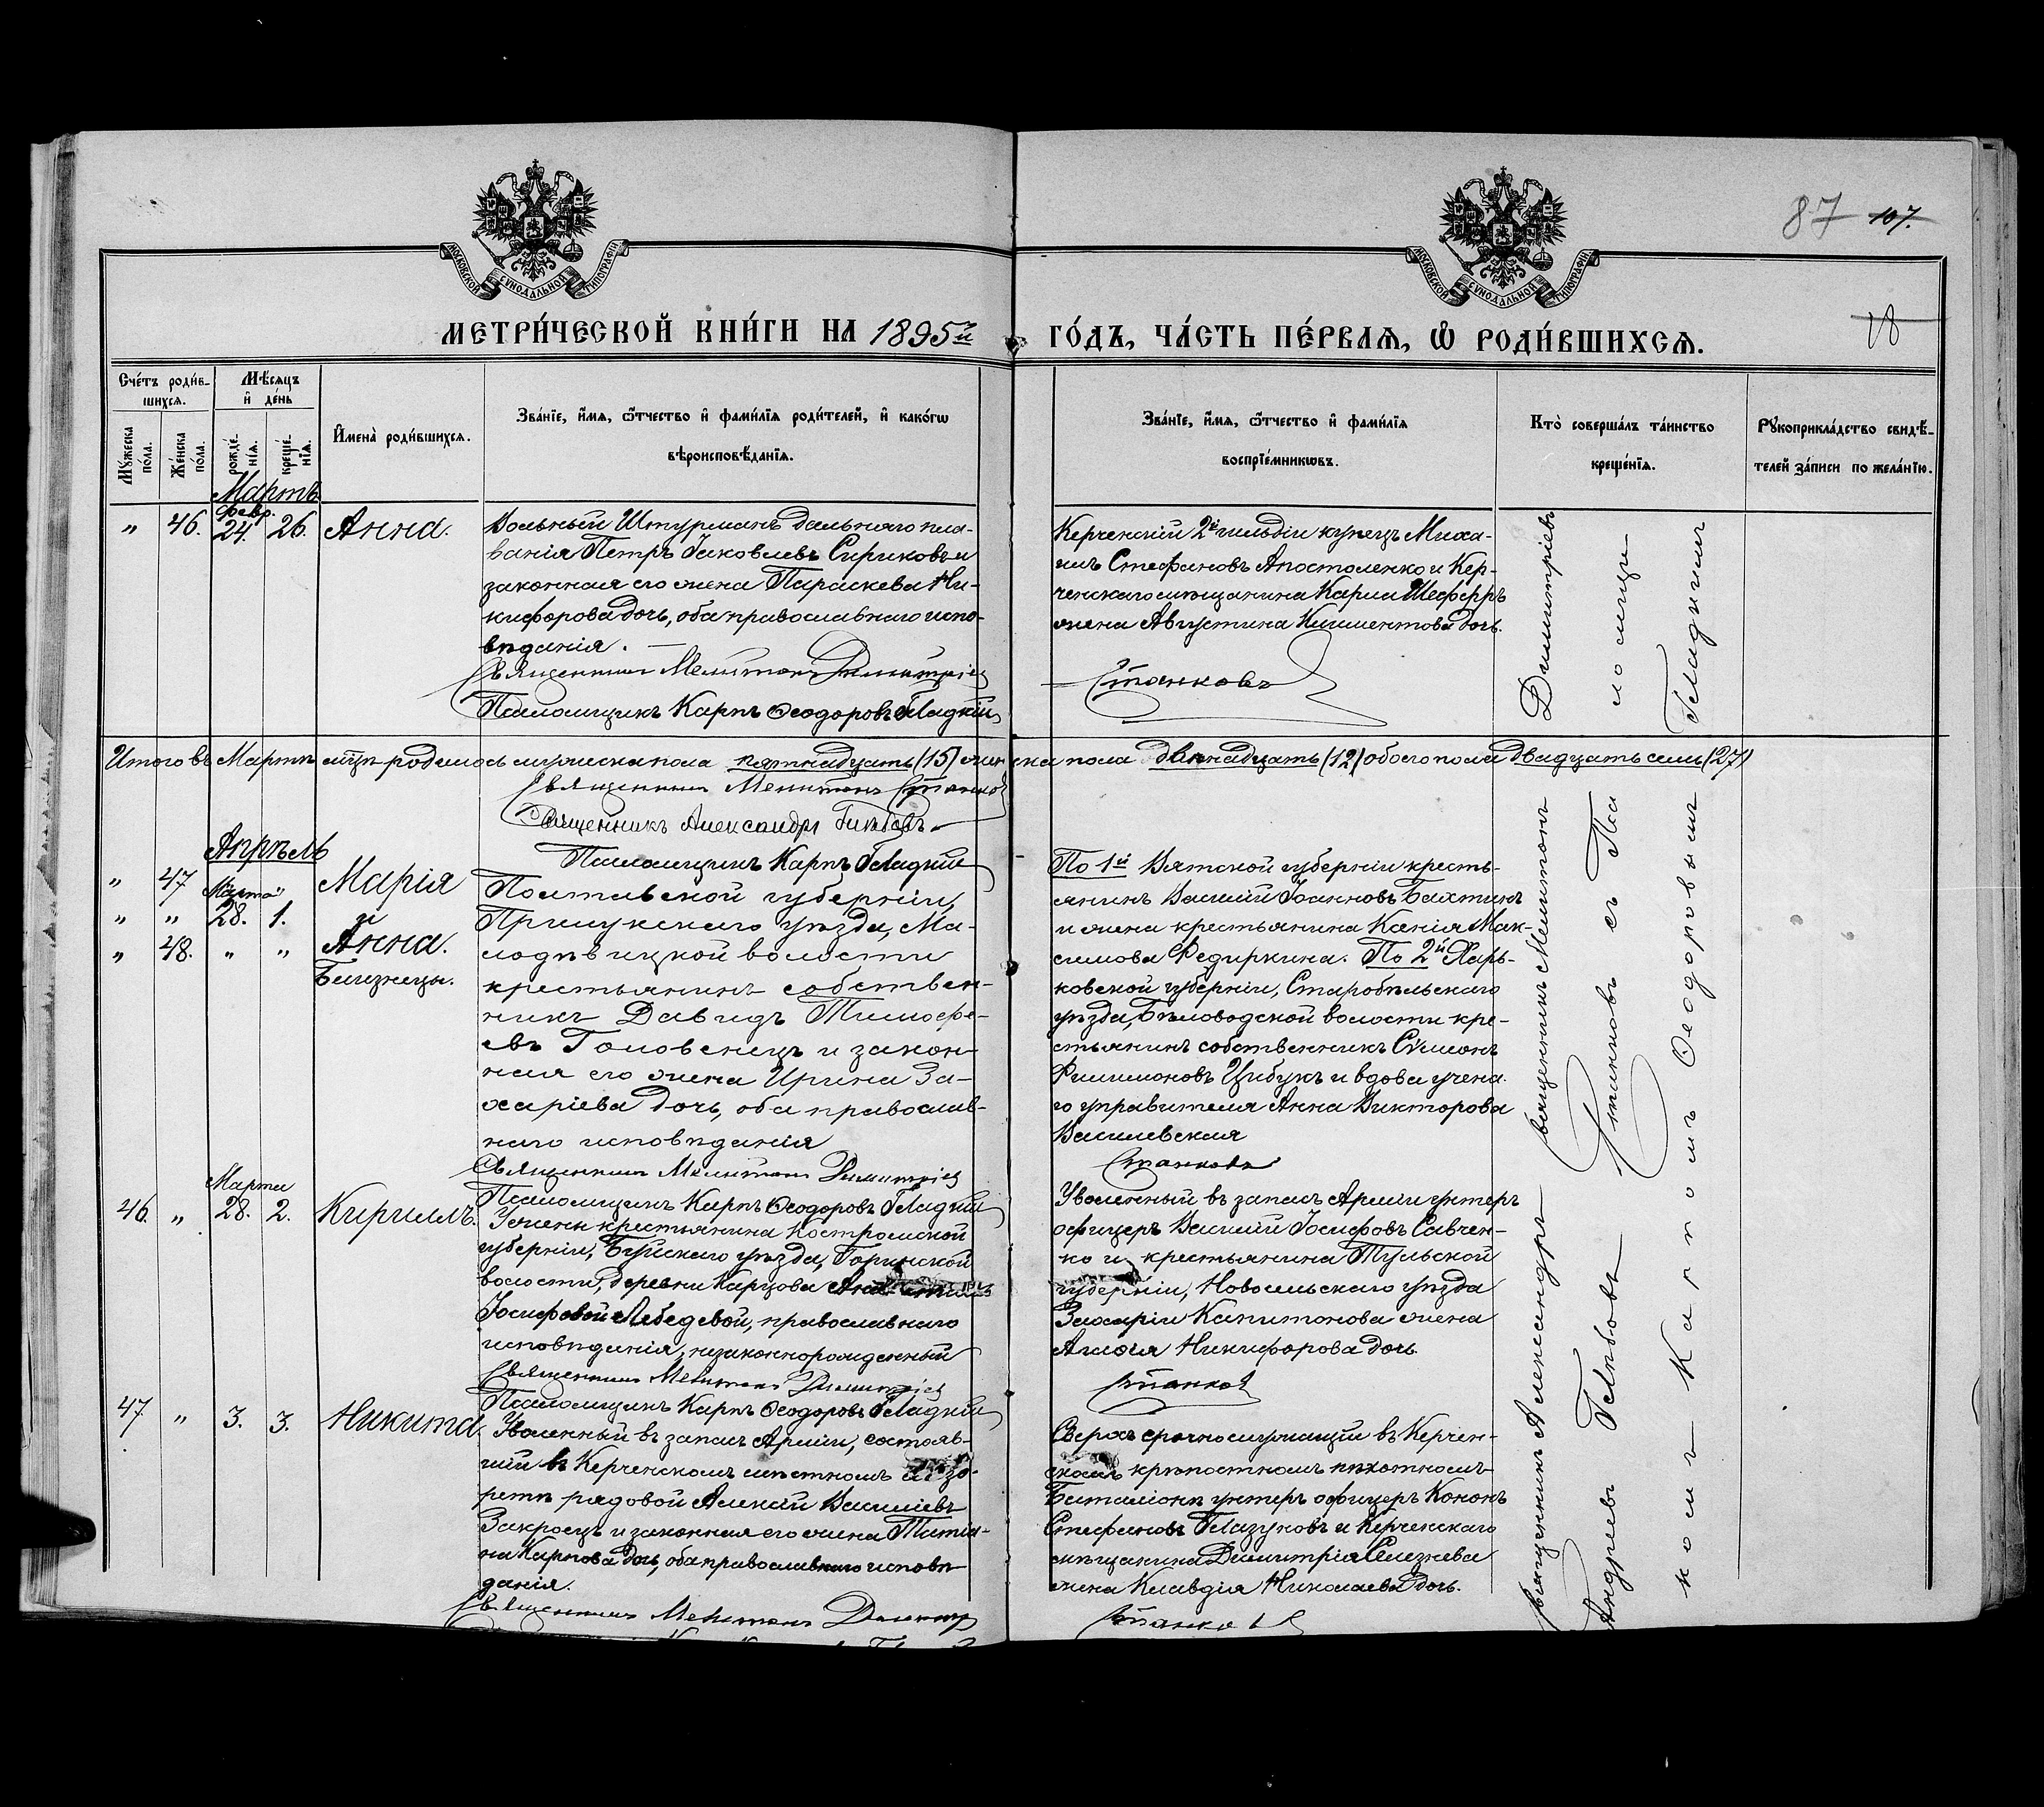 МОСКОВСКОЙ СѴНОДАЛЬНОЙ ТИПОГРАФІИ
МОСКОВСКОЙ СѴНОДАЛЬНОЙ ТИПОГРАФІИ
87 107.
18
МЕТРИ́ЧЕСКОЙ КНИ́ГИ НА 1895й ГО́ДЪ, ЧА́СТЬ ПЕ́РВАѦ, Ѡ҆ РОДИ́ВШИХСѦ.
Сче́тъ роди́в-
шихсѧ.
Мѣ́сѧцъ
и҆ де́нь
Мꙋ́жеска
по́ла.
Же́нска
по́ла.
рожде́-
нїѧ.
креще́-
нїѧ.
И҆мена̀ роди́вшихсѧ.
Зва́нїе, и҆́мѧ, ѻ҆́тчество и҆ фами́лїѧ роди́телей, и҆ како́гѡ
вѣроисповѣ́данїѧ.
Зва́нїе, и҆́мѧ, ѻ҆́тчество и҆ фами́лїѧ
воспрїе́мникѡвъ.
Кто̀ соверша́лъ та́инство
креще́нїѧ.
Рꙋкоприкла́дство свидѣ́-
телей за́писи по жела́нїю.
Мартъ
февр.
„ 46. 24. 26. Анна.
Вольный Штурманъ дальняго пла-
ванія Петръ Іаковлевъ Сириковъ и
законная его жена Параскева Ни-
кифорова дочь, оба православнаго испо-
вѣданія.
Священникъ Мелитонъ Димитріев
Псаломщикъ Карпъ Ѳеодоровъ Гладкій
Керченскій 2й гильдіи купецъ Миха-
илъ Стефановъ Апостоленко и Кер-
ченскаго мѣщанина Карла Шефферъ
жена Августина Климентова дочь.
Станковъ
Димитріевъ
ломщи-
Гладкимъ
Итого въ Мартѣ м-цѣ родилось мужеска пола пятнадцать (15) женска пола двѣнадцать (12) обоего пола двадцать семь (27)
Священникъ Мелитонъ Станков
Священникъ Александръ Глѣбовъ
Псаломщикъ Карпъ Гладкій
Апрѣль
„ 47 Марта Марія
„ „ 28. 1. и
„ 48. „ „ Анна.
Близнецы.
Полтавской губерніи,
Прилукскаго уѣзда, Ма-
лодѣвицкой волости
крестьянинъ собствен-
никъ Давидъ Тимофе-
евъ Головенецъ и закон-
ная его жена Ирина За-
харіева дочь, оба православ-
наго исповѣданія
Священникъ Мелитонъ Димитріев
Псаломщикъ Карпъ Ѳеодоровъ Гладкій
По 1й Вятской губерніи кресть-
янинъ Василій Іоанновъ Бахтинъ
и жена крестьянина Ксенія Мак-
симова Федиркина. По 2й Харь-
ковской губерніи, Старобѣльскаго
уѣзда, Бѣловодской волости кре-
стьянинъ собственникъ Сѵмеонъ
Филимоновъ Цибукъ и вдова учена-
го управителя Анна Викторова
Василевская
Станковъ
Священникъ Мелитонъ
Станковъ съ Пса
комъ Карпомъ Ѳеодоровымъ
Марта
46. „ 28. 2. Кириллъ.
У жены крестьянина Костромской
губерніи, Буйскаго уѣзда,
волости, деревни Карцова
Іосифовой Лебедевой, православнаго
исповѣданія, незаконнорожденный
Священникъ Мелитонъ Димитріев
Псаломщикъ Карпъ Ѳеодоровъ Гладкій
Уволенный въ запасъ Арміи унтеръ
офицеръ Василій Іосифовъ Савчен-
ко и крестьянина Тульской
губерніи, Новосильскаго уѣзда
Захаріи Капитонова жена
Агаѳія Никифорова дочь.
Станков
47. „ 3. 3. Никита.
Уволенный въ запасъ Арміи, состояв-
шій въ Керченскомъ мѣстномъ лазо-
ретѣ рядовой Алексій Василіевъ
Закроецъ и законная его жена Татіа-
на Карпова дочь, оба православнаго исповѣ-
данія.
Священникъ Мелитонъ Димитр
Сверхсрочнослужащій въ Керчен-
скомъ крѣпостномъ пѣхотномъ
Баталіонѣ унтеръ офицеръ Кононъ
Стефановъ Глазуновъ и Керченскаго
мѣщанина Димитрія Селезнева
жена Клавдія Николаева дочь.
Станков
Священникъ Александръ
Андреевъ Глѣбовъ